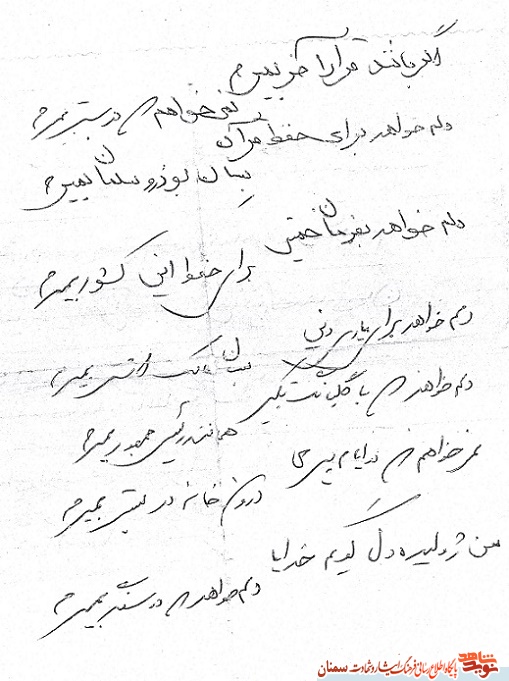 اگر باشد قرار آخر بمیرم
نمی‌خواهم من در بستر بمیرم
دلم خواهد برای حفظ قرآن
بسان بوذر و سلمان بمیرم
دلم خواهد بفرمان خمینی
برای حفظ این کشور بمیرم
دلم خواهد برای یاری دین
بسان مالک اشتر بمیرم
دلم خواهد من با
همانند رئیس جمهور بمیرم
نمی خواهم من در ایام پیری
درون خانه در بستر بمیرم
من ژولیده دل گویم خدایا
دلم خواهد من در سنگر بمیرم
نوید شاهد
پایگاه اطلاع رسانی فرهنگ ایثار و شهادت سمنان